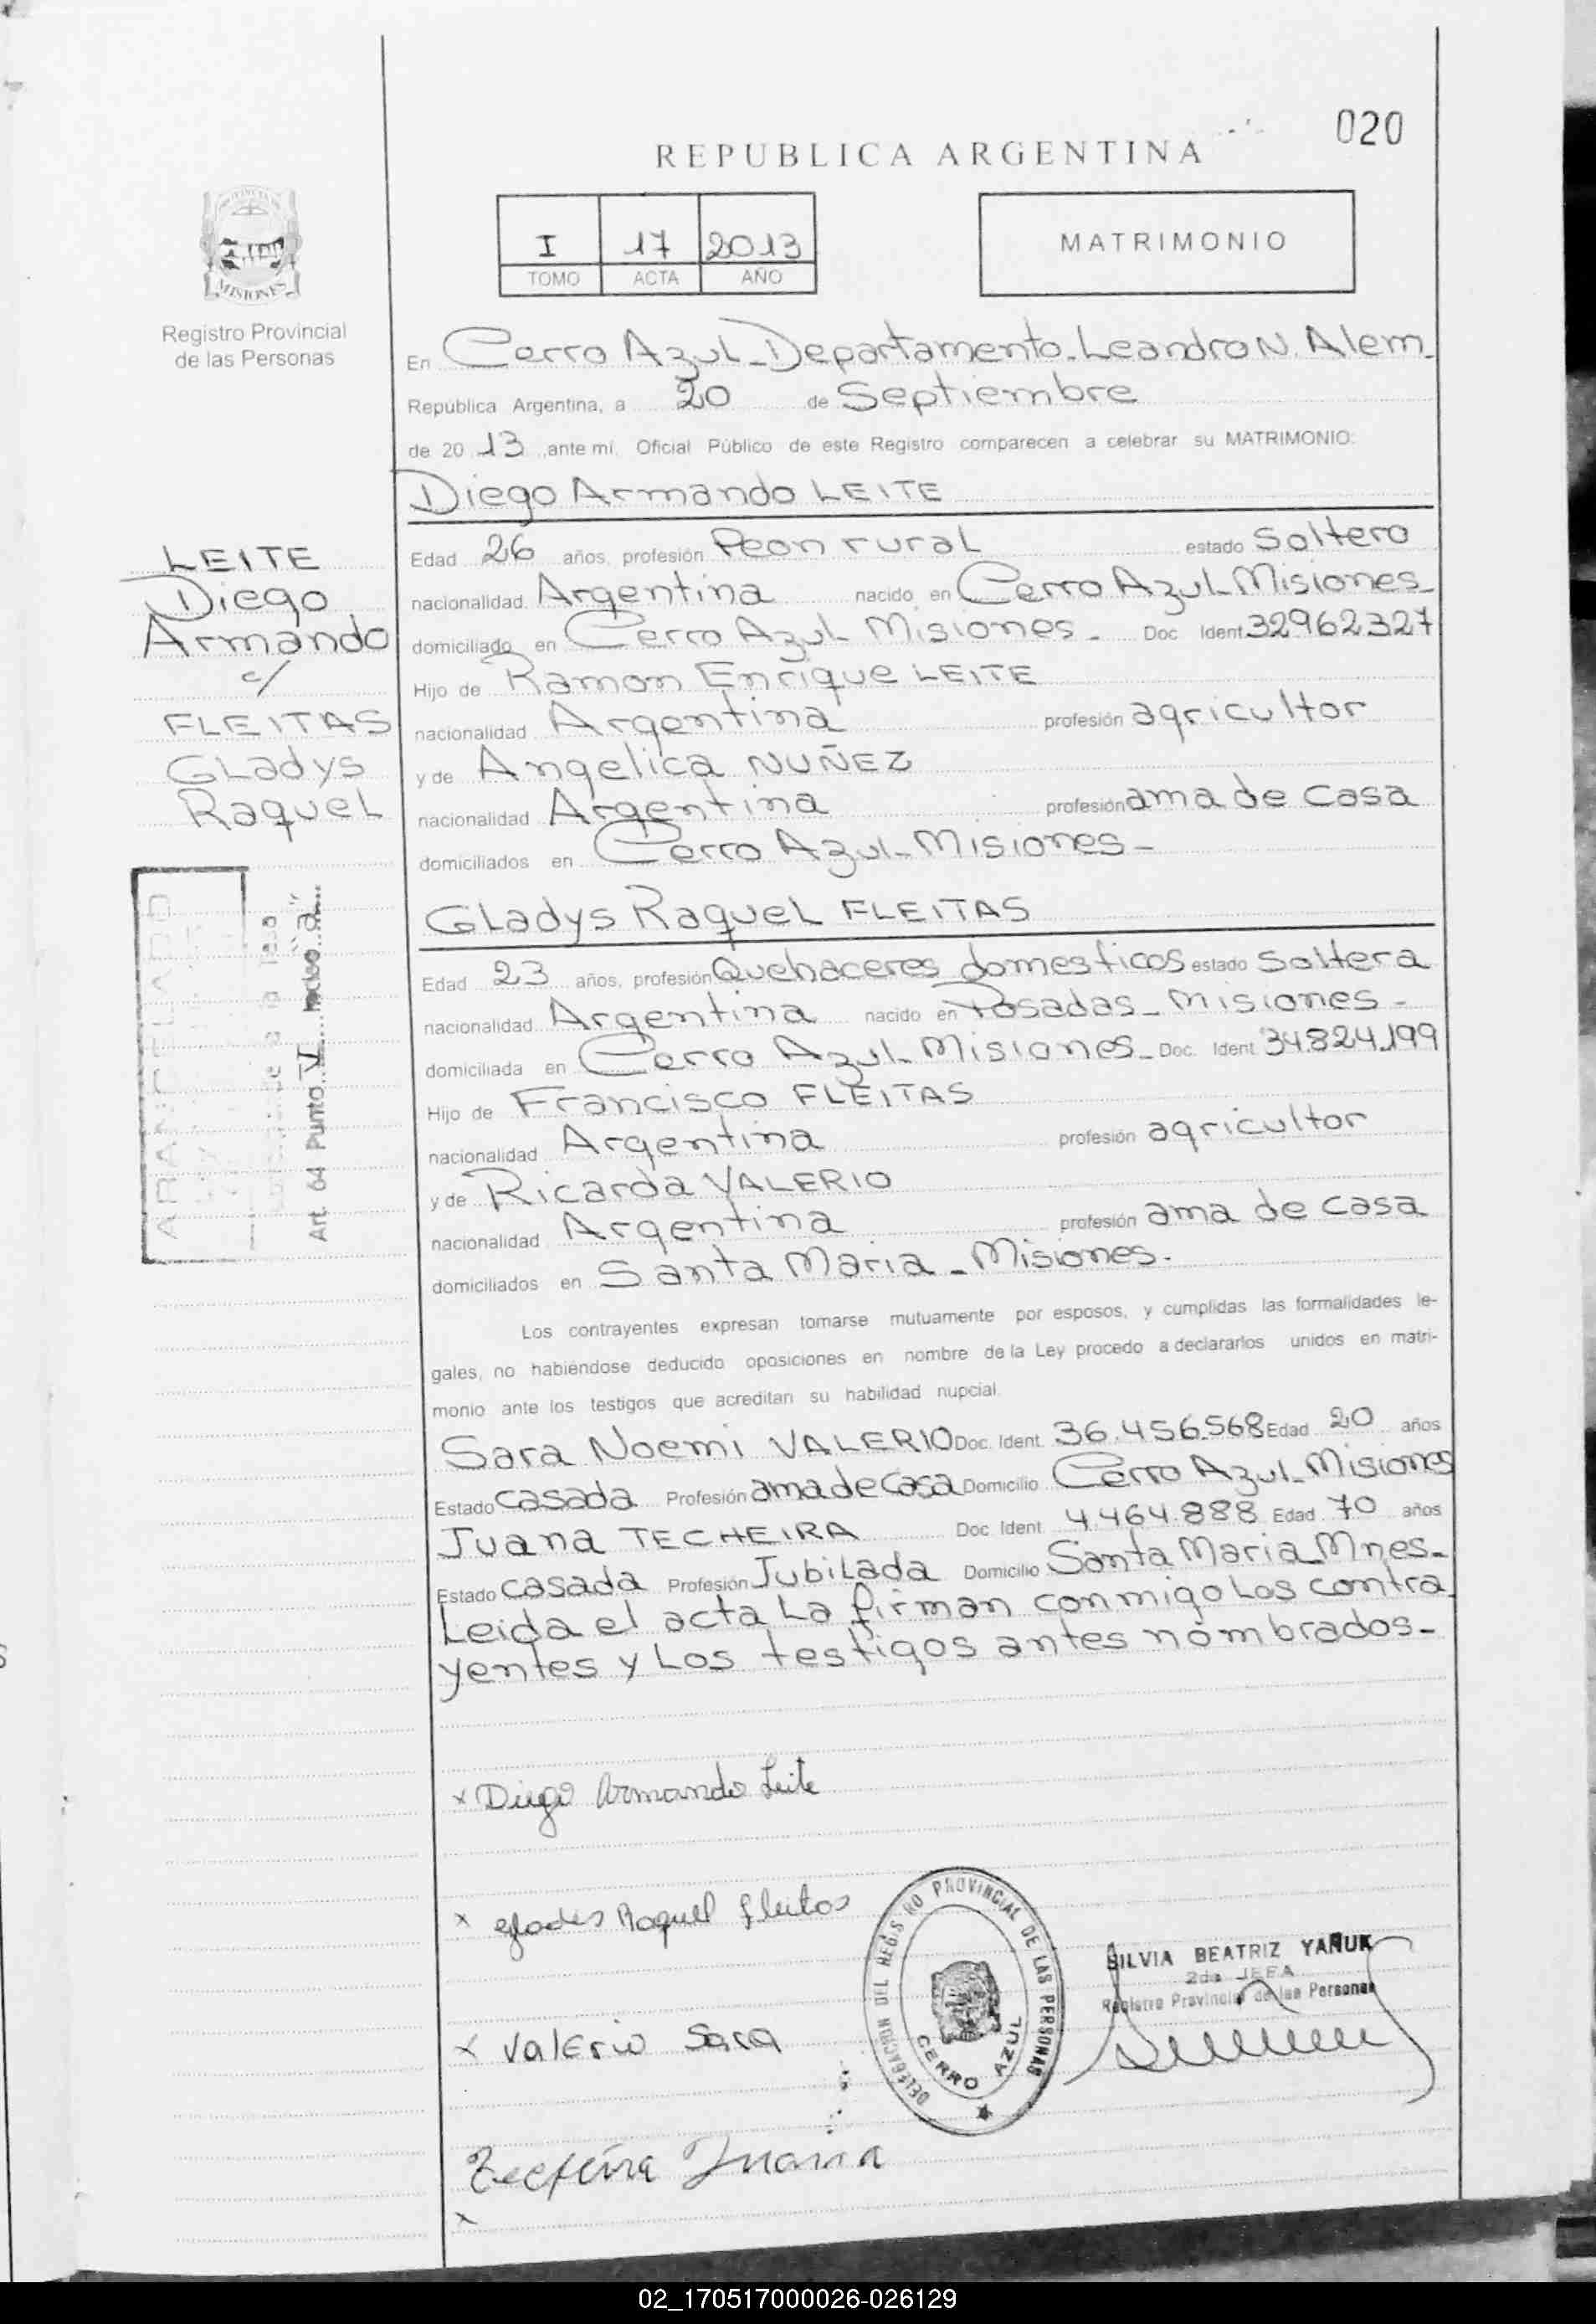 020
REPUBLICA ARGENTINA
I 17 2013
TOMO ACTA AÑO
MATRIMONIO
MISIONES
Registro Provincial
de las Personas
En Cerro Azul-Departamento-Leandro N. Alem-
República Argentina, a 20 de Septiembre
de 20 13, ante mí, Oficial Público de este Registro comparecen a celebrar su MATRIMONIO:
Diego Armando LEITE
LEITE
Diego
Armando
c/
FLEITAS
Gladys
Raquel
Edad 26 años, profesión Peon rural estado Soltero
nacionalidad Argentina nacido en Cerro Azul-Misiones-
domiciliado en Cerro Azul-Misiones- Doc Ident 32962327
Hijo de Ramon Enrique LEITE
nacionalidad Argentina profesión agricultor
y de Angelica NUÑEZ
nacionalidad Argentina profesión ama de casa
domiciliados en Cerro Azul-Misiones-
Gladys Raquel FLEITAS
ARANCELADO
Art. 64 Punto V inciso "a"
Edad 23 años, profesión Quehaceres domesticos estado Soltera
nacionalidad Argentina nacido en Posadas-Misiones-
domiciliada en Cerro Azul-Misiones- Doc. Ident 34.824.199
Hijo de Francisco FLEITAS
nacionalidad Argentina profesión agricultor
y de Ricarda VALERIO
nacionalidad Argentina profesión ama de casa
domiciliados en Santa Maria-Misiones.
Los contrayentes expresan tomarse mutuamente por esposos, y cumplidas las formalidades le-
gales, no habiéndose deducido oposiciones en nombre de la Ley procedo a declararlos unidos en matri-
monio ante los testigos que acreditan su habilidad nupcial.
Sara Noemi VALERIO Doc. Ident. 36.456.568 Edad 20 años
Estado Casada Profesión ama de casa Domicilio Cerro Azul-Misiones
Juana TECHEIRA Doc Ident 4.464.888 Edad 70 años
Estado Casada Profesión Jubilada Domicilio Santa Maria Mnes-
Leida el acta La firman conmigo Los contra
yentes y Los testigos antes nombrados-
x Diego Armando Leite
x Glades Raquel Fleitas
DELEGACION DEL REGIS RO PROVINCIAL DE LAS PERSONAS
CERRO AZUL
SILVIA BEATRIZ YAÑUK
2da JEFA
Registro Provincial de las Personas
x Valerio Sara
Techeira Juana
x
02_170517000026-026129